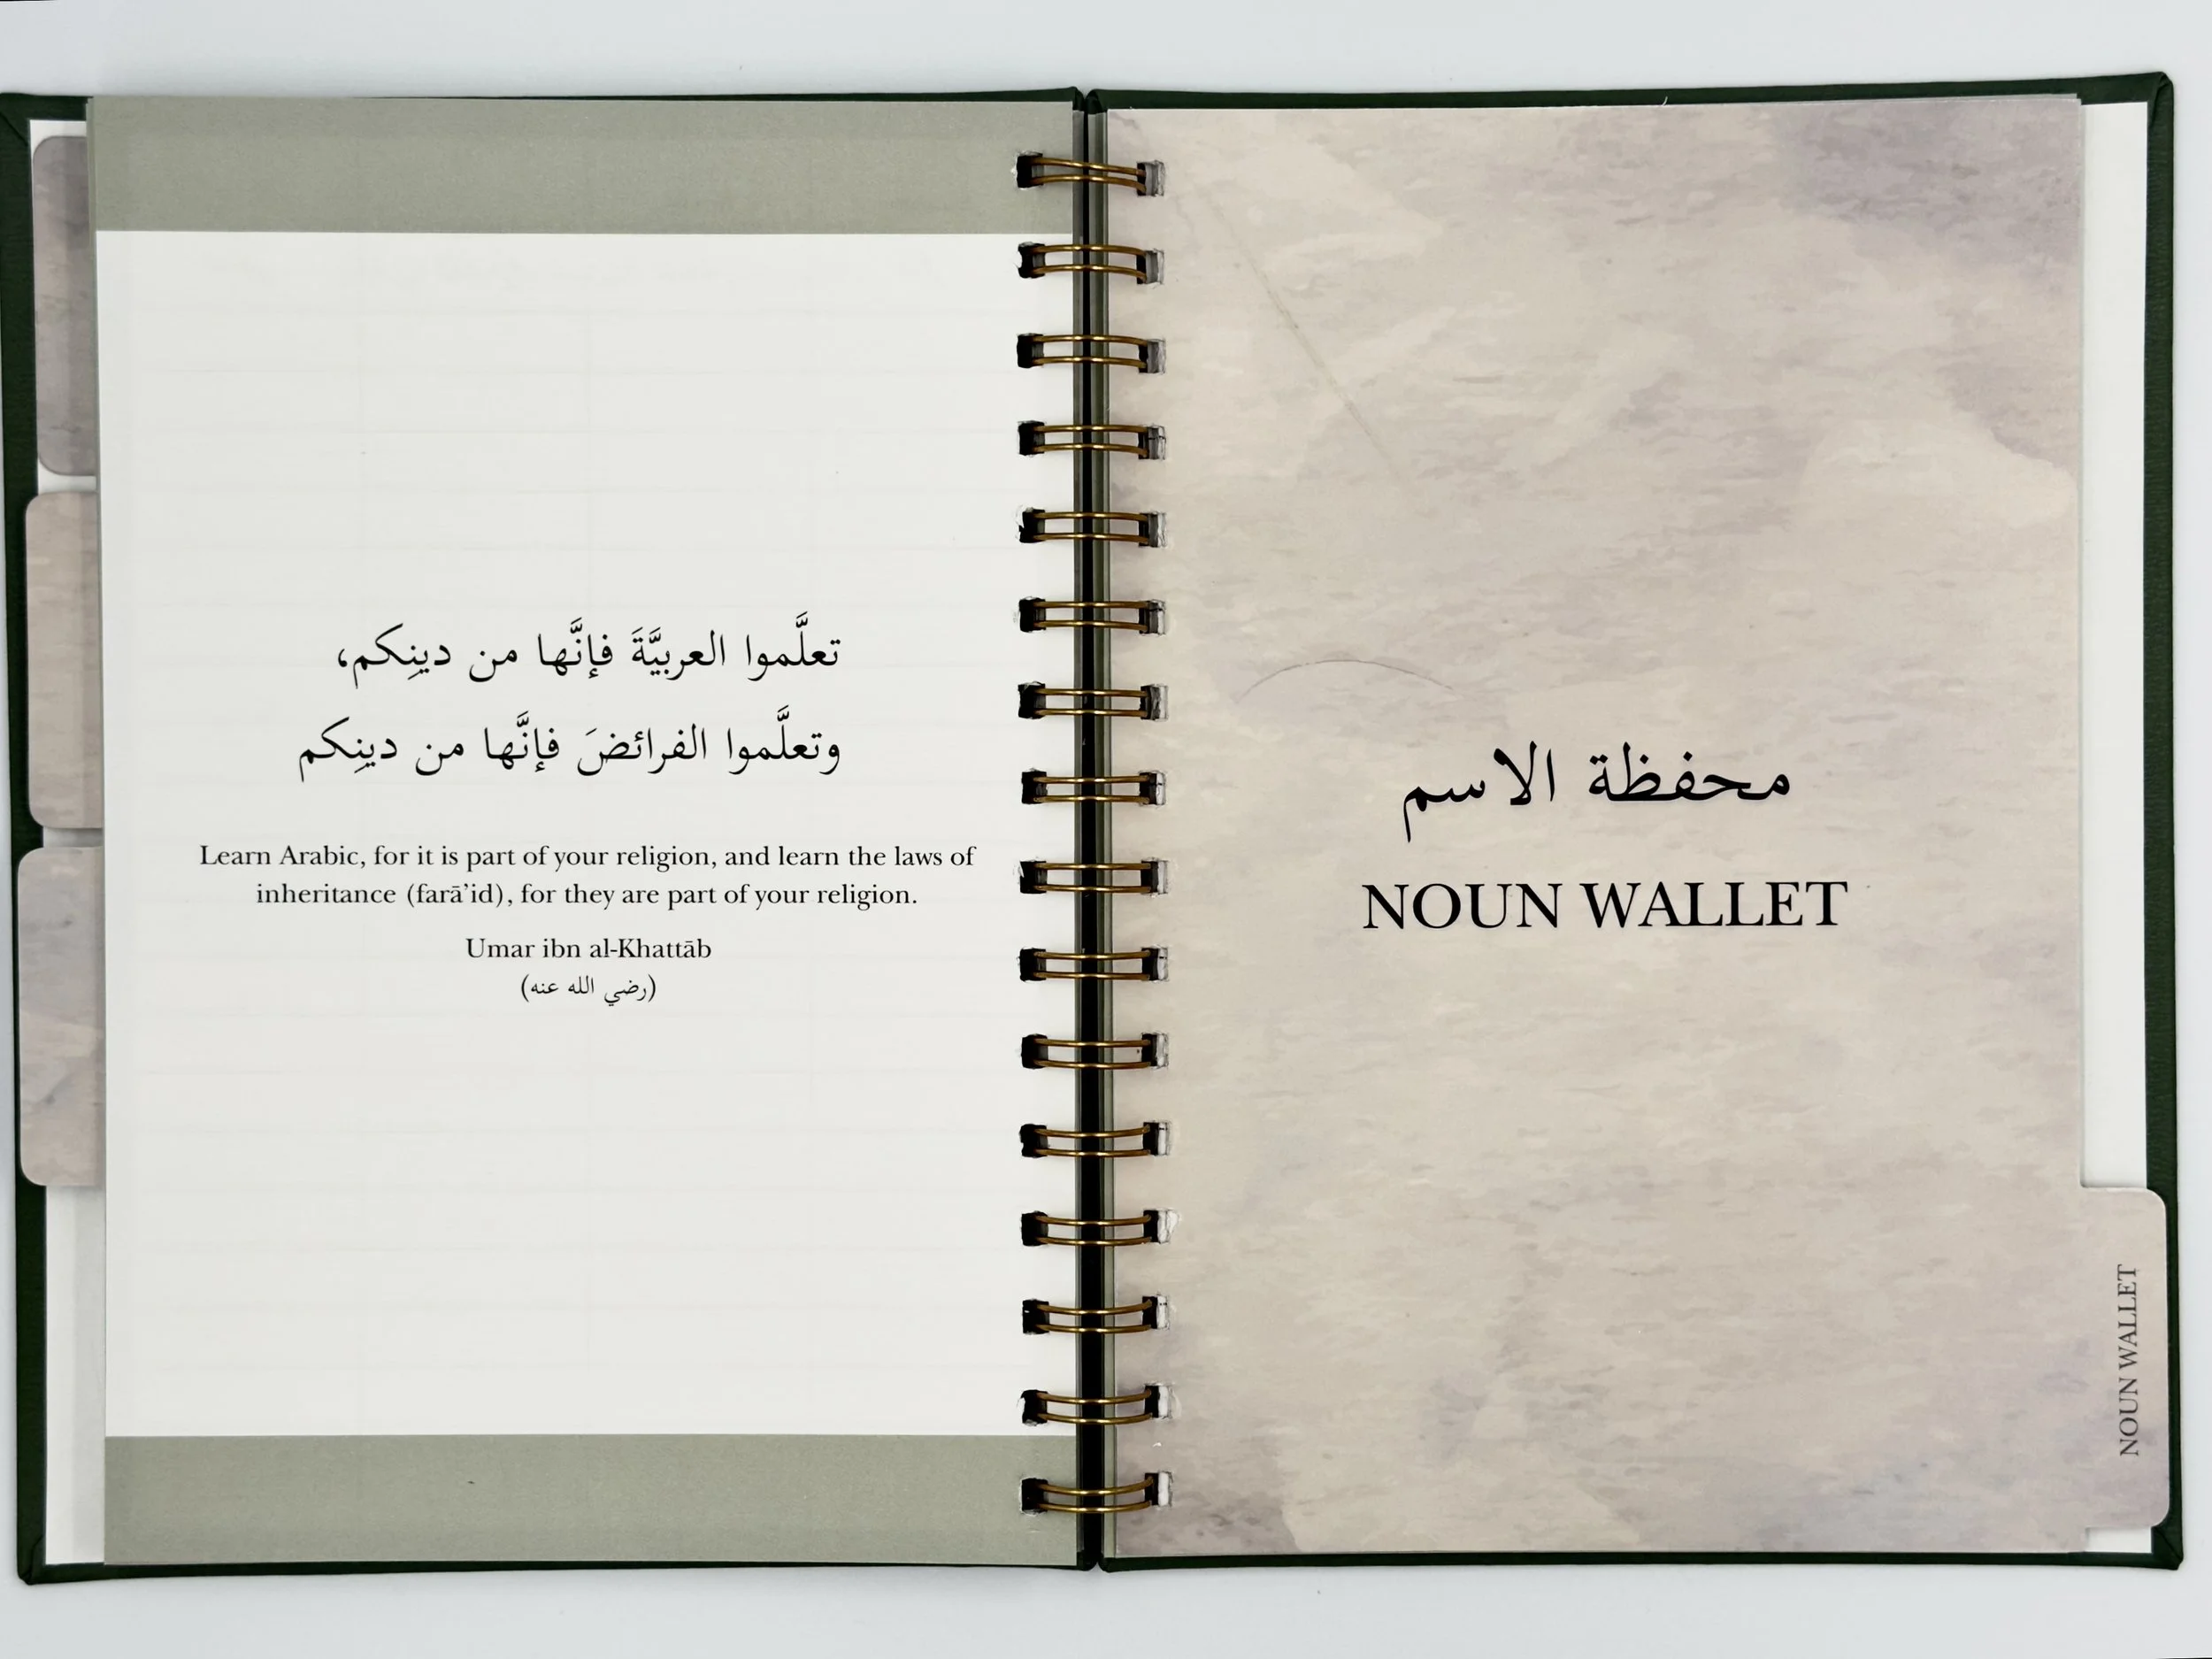 تعلَّموا العربيَّةَ فإنَّها من دينِكم،
وتعلَّموا الفرائضَ فإنَّها من دينِكم
Learn Arabic, for it is part of your religion, and learn the laws of
inheritance (farā’id), for they are part of your religion.
Umar ibn al-Khattāb
(رضي الله عنه)
محفظة الاسم
NOUN WALLET
NOUN WALLET